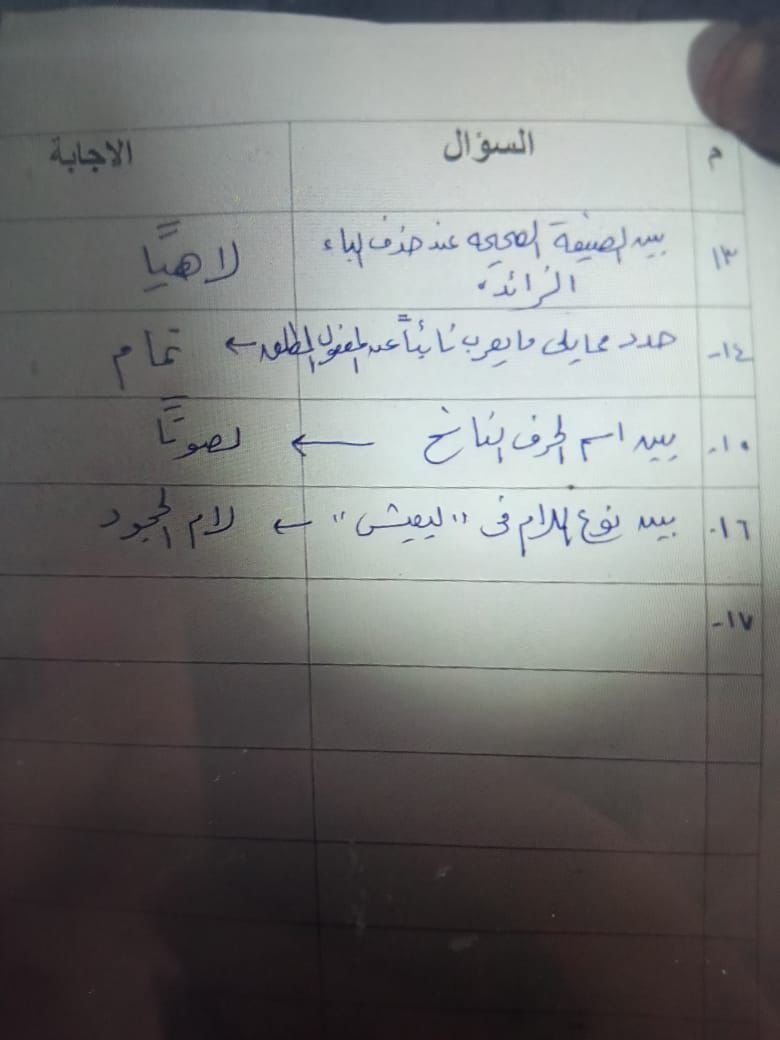 م السؤال الاجابة
١٣ بين الصيغة الصحيحة عند حذف الباء الزائدة. لاهيًا
١٤- حدد مما يلى ما يعرب نائباً عن المفعول المطلق ← تمام
١٥- بين اسم الحرف الناسخ ← لصوتًا
١٦- بين نوع اللام فى "ليعيش" ← لام الجحود
١٧-